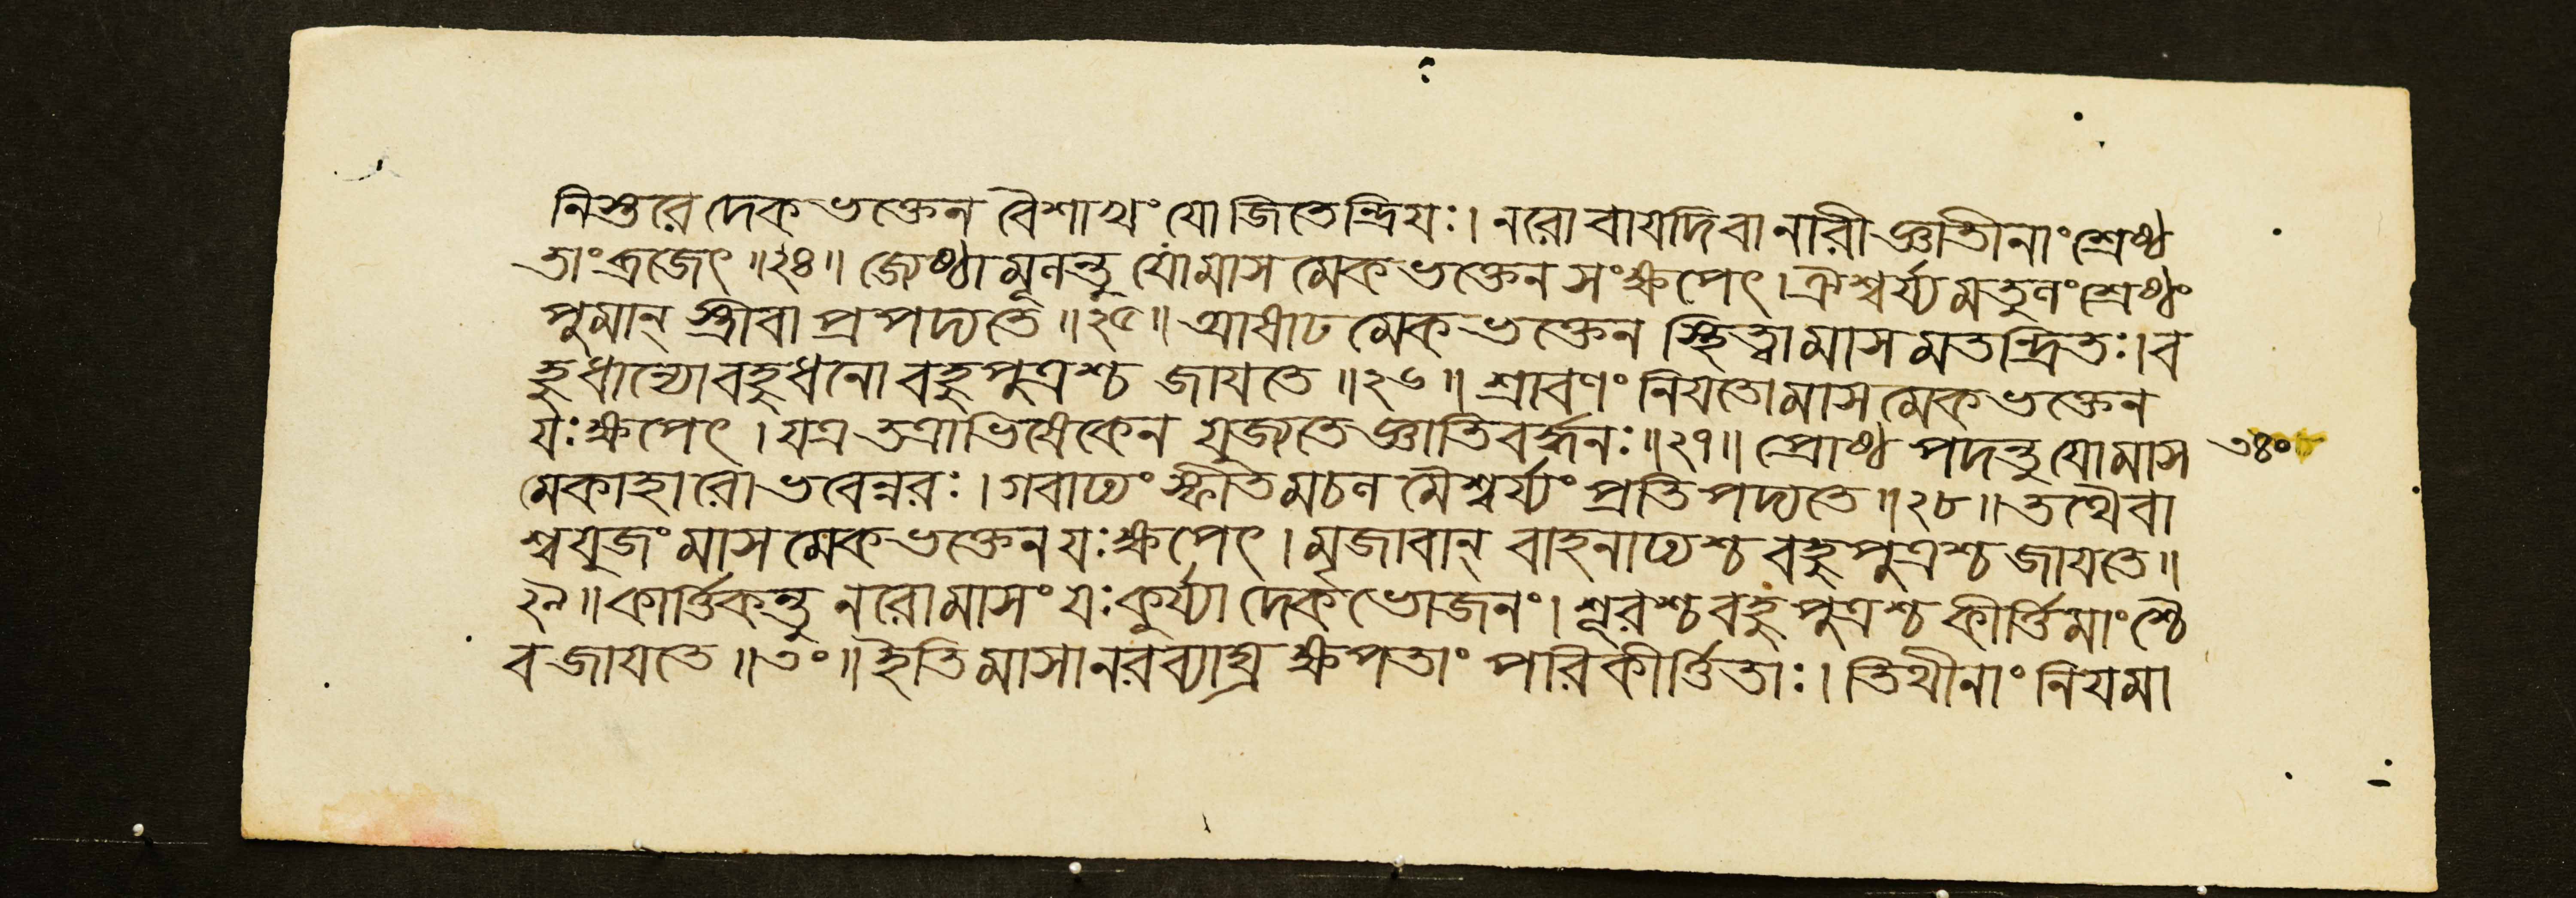 নিস্তরেদেকভক্তেন বৈশাখং যো জিতেন্দ্রিযঃ। নরো বাযদি বা নারী জ্ঞাতীনাং শ্রেষ্ঠ
তাং ব্রজেৎ ॥২৪॥ জ্যেষ্ঠামূলন্তু যোমাস মেক ভক্তেন সংক্ষপেৎ। ঐশ্বর্য্য মতুলং শ্রেষ্ঠং
পুমান্ স্ত্রীবা প্রপদ্যতে ॥২৫॥ আষাঢ মেক ভক্তেন স্থিত্বা মাস মতন্দ্রিতঃ। ব
হুধান্যো বহুধনো বহুপুত্রশ্চ জাযতে ॥২৬॥ শ্রাবণং নিযতো মাস মেক ভক্তেন
যঃ ক্ষপেৎ। যত্র তত্রাভিষেকেন যুজ্যতে জ্ঞাতিবর্দ্ধনঃ ॥২৭॥ প্রৌষ্ঠ পদন্তু যো মাস ৩৪০
মেকাহারো ভবেন্নরঃ। গবাঢ্যং স্ফীতমচল মৈশ্বর্য্যং প্রতিপদ্যতে ॥২৮॥ তথৈবা
শ্বযুজং মাস মেকভক্তেন যঃ ক্ষপেৎ। মৃজাবান্ বাহনাঢ্যশ্চ বহুপুত্রশ্চ জাযতে ॥
২৯॥ কার্ত্তিকন্তু নরো মাসং যঃ কুর্য্যা দেক ভোজনং। শূরশ্চ বহু পুত্রশ্চ কীর্ত্তিমাংশ্চৈ
ব জাযতে ॥৩০॥ ইতি মাসা নরব্যাঘ্র ক্ষপতাং পরিকীর্ত্তিতাঃ। তিথীনাং নিযমা